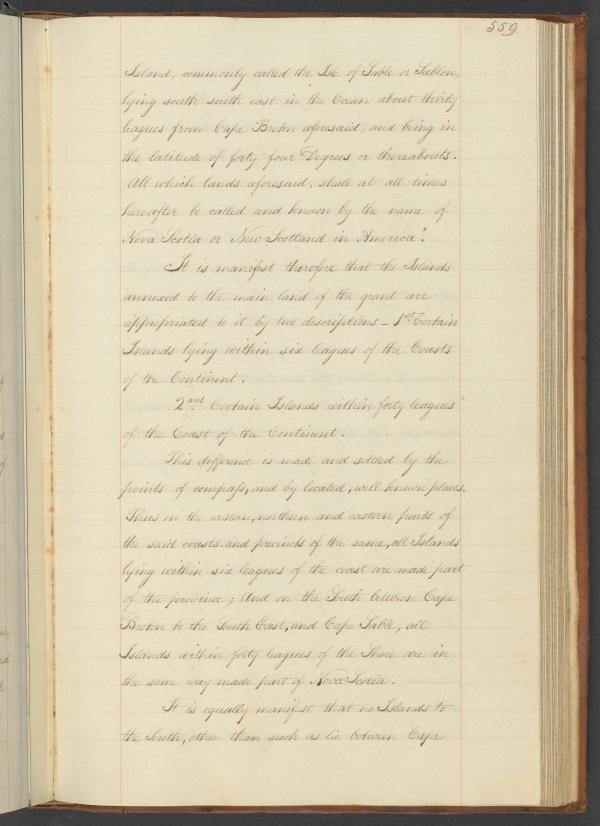 559
Island, commonly called the Isle of Sable or Sablon,
lying south south east in the Ocean about thirty
leagues from Cape Breton aforesaid, and being in
the latitude of forty four Degrees or thereabouts.
All which lands aforesaid, shall at all times
hereafter be called and known by the name of
Nova Scotia or New Scotland in America".
It is manifest therefore that the Islands
annexed to the main land of the grant are
appropriated to it by two descriptions – 1st Certain
Islands lying within six leagues of the Coasts
of the Continent.
2nd Certain Islands within forty leagues
of the Coast of the Continent.
This difference is made and settled by the
points of compass, and by located, well known places.
Thus on the western, northern and eastern parts of
the said coasts and precincts of the same, all Islands
lying within six leagues of the coast are made part
of the province; And on the South between Cape
Breton to the South East, and Cape Sable, all
Islands within forty leagues of the Shore are in
the same way made part of Nova Scotia.
It is equally manifest that no Islands to
the South, other than such as lie between Cape